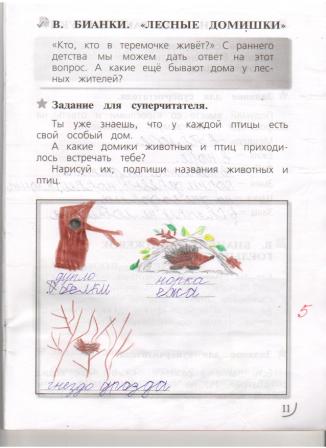 В. БИАНКИ. «ЛЕСНЫЕ ДОМИШКИ»
«Кто, кто в теремочке живёт?» С раннего
детства мы можем дать ответ на этот
вопрос. А какие ещё бывают дома у лес-
ных жителей?
Задание для суперчитателя.
Ты уже знаешь, что у каждой птицы есть
свой особый дом.
А какие домики животных и птиц приходи-
лось встречать тебе?
Нарисуй их, подпиши названия животных и
птиц.
дупло
белки
норка
ежа
гнездо дрозда
5
11